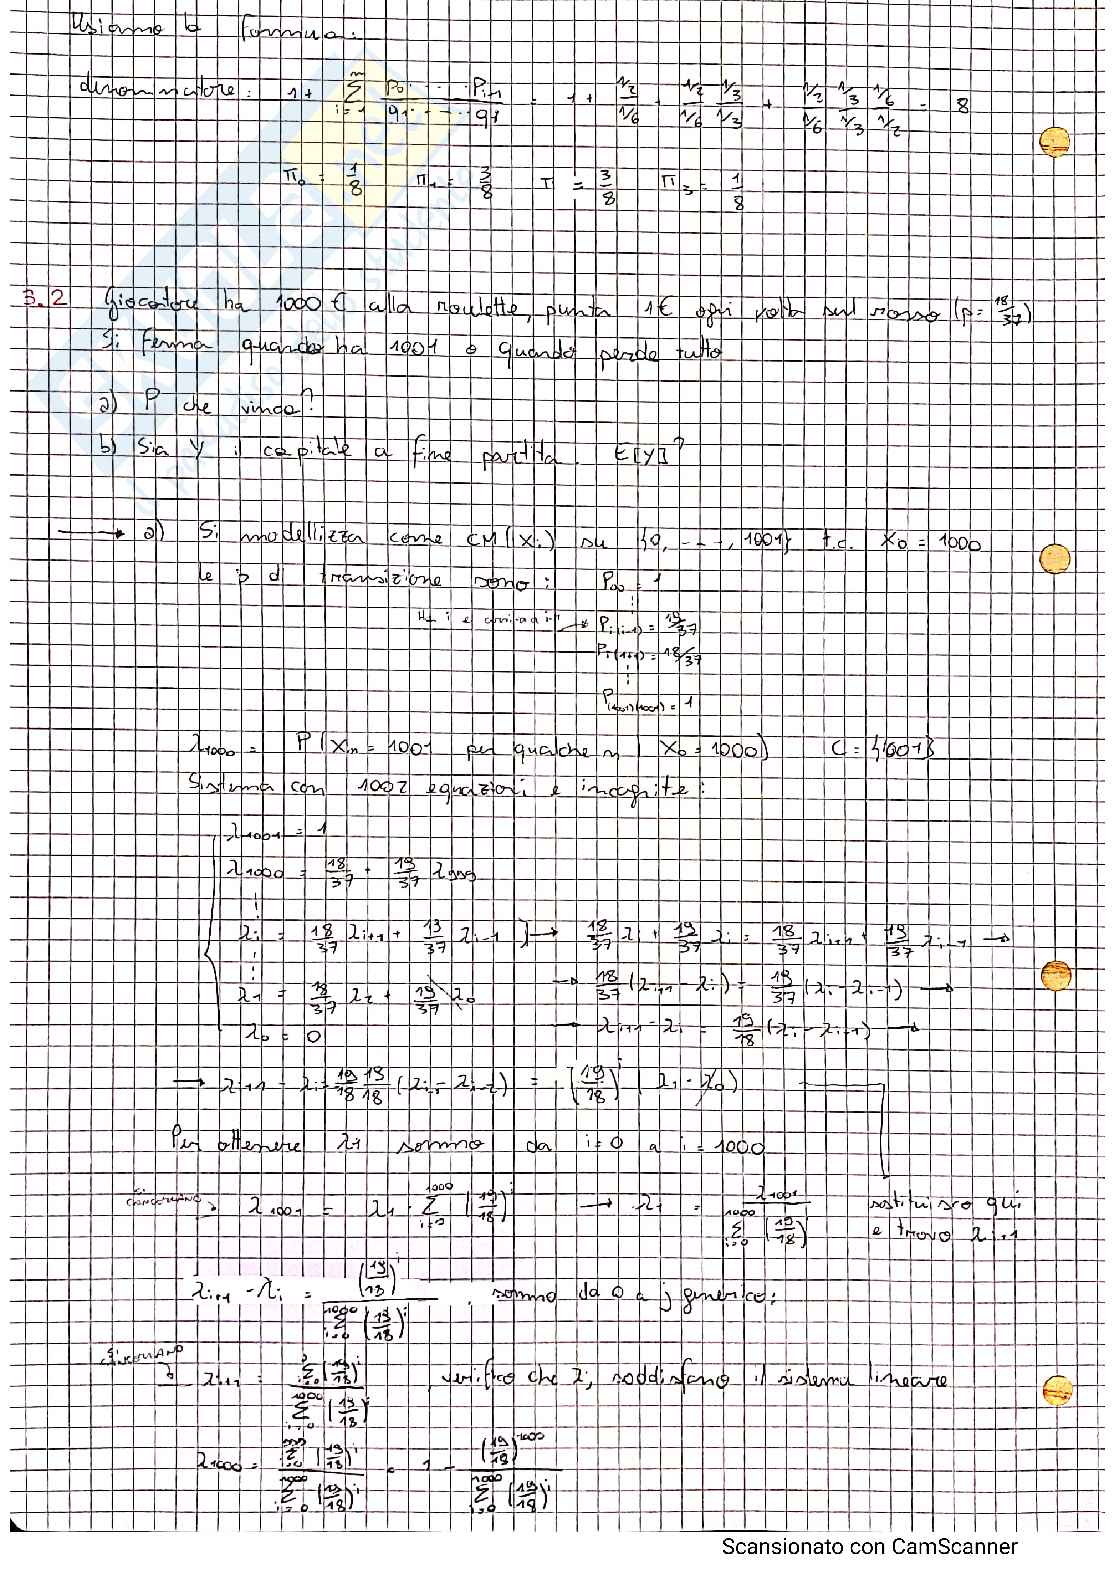 Usiamo la formula:
denominatore: 1 + ∑_{i=1}^{m} (p_0 ... p_{i-1})/(q_1 ... q_i) = 1 + (1/2)/(1/6) + (1/2)/(1/6) (1/3)/(1/3) + (1/2)/(1/6) (1/3)/(1/3) (1/6)/(1/2) = 8
π_0 = 1/8 π_1 = 3/8 π = 3/8 π_3 = 1/8
3.2 Giocatore ha 1000 € alla roulette, punta 1€ ogni volta sul rosso (p = 18/37)
Si ferma quando ha 1001 o quando perde tutto
a) P che vinca?
b) Sia Y il capitale a fine partita. E[Y]?
→ a) Si modellizza come CM (X_i) su {0, ---, 1001} t.c. X_0 = 1000
le p di transizione sono: P_00 = 1
P_{i(i-1)} = 19/37
P_{i(i+1)} = 18/37
P_{(1001)(1001)} = 1
λ_1000 = P(X_n = 1001 per qualche n | X_0 = 1000) C = {1001}
Sistema con 1002 equazioni e incognite:
λ_1001 = 1
λ_1000 = 18/37 + 19/37 λ_999
λ_i = 18/37 λ_{i+1} + 19/37 λ_{i-1} } → 18/37 λ_i + 19/37 λ_i = 18/37 λ_{i+1} + 19/37 λ_{i-1} →
λ_1 = 18/37 λ_2 + 19/37 λ_0 → 18/37 (λ_{i+1} - λ_i) = 19/37 (λ_i - λ_{i-1}) →
λ_0 = 0 → λ_{i+1} - λ_i = 19/18 (λ_i - λ_{i-1}) →
→ λ_{i+1} - λ_i = 19/18 19/18 (λ_{i-1} - λ_{i-2}) = (19/18)^i (λ_1 - λ_0)
Per ottenere λ_1 sommo da i=0 a i=1000
Si cancellano → λ_1001 = λ_1 · ∑_{i=0}^{1000} (19/18)^i → λ_1 = λ_1001 / ∑_{i=0}^{1000} (19/18)^i sostituisco qui
e trovo λ_{i+1}
λ_{i+1} - λ_i = (19/18)^i / ∑_{i=0}^{1000} (19/18)^i , sommo da 0 a j generico:
Si cancellano → λ_{j+1} = ∑_{i=0}^{j} (19/18)^i / ∑_{i=0}^{1000} (19/18)^i , verifico che λ_j soddisfano il sistema lineare
λ_1000 = ∑_{i=0}^{999} (19/18)^i / ∑_{i=0}^{1000} (19/18)^i = 1 - (19/18)^1000 / ∑_{i=0}^{1000} (19/18)^i
Scansionato con CamScanner